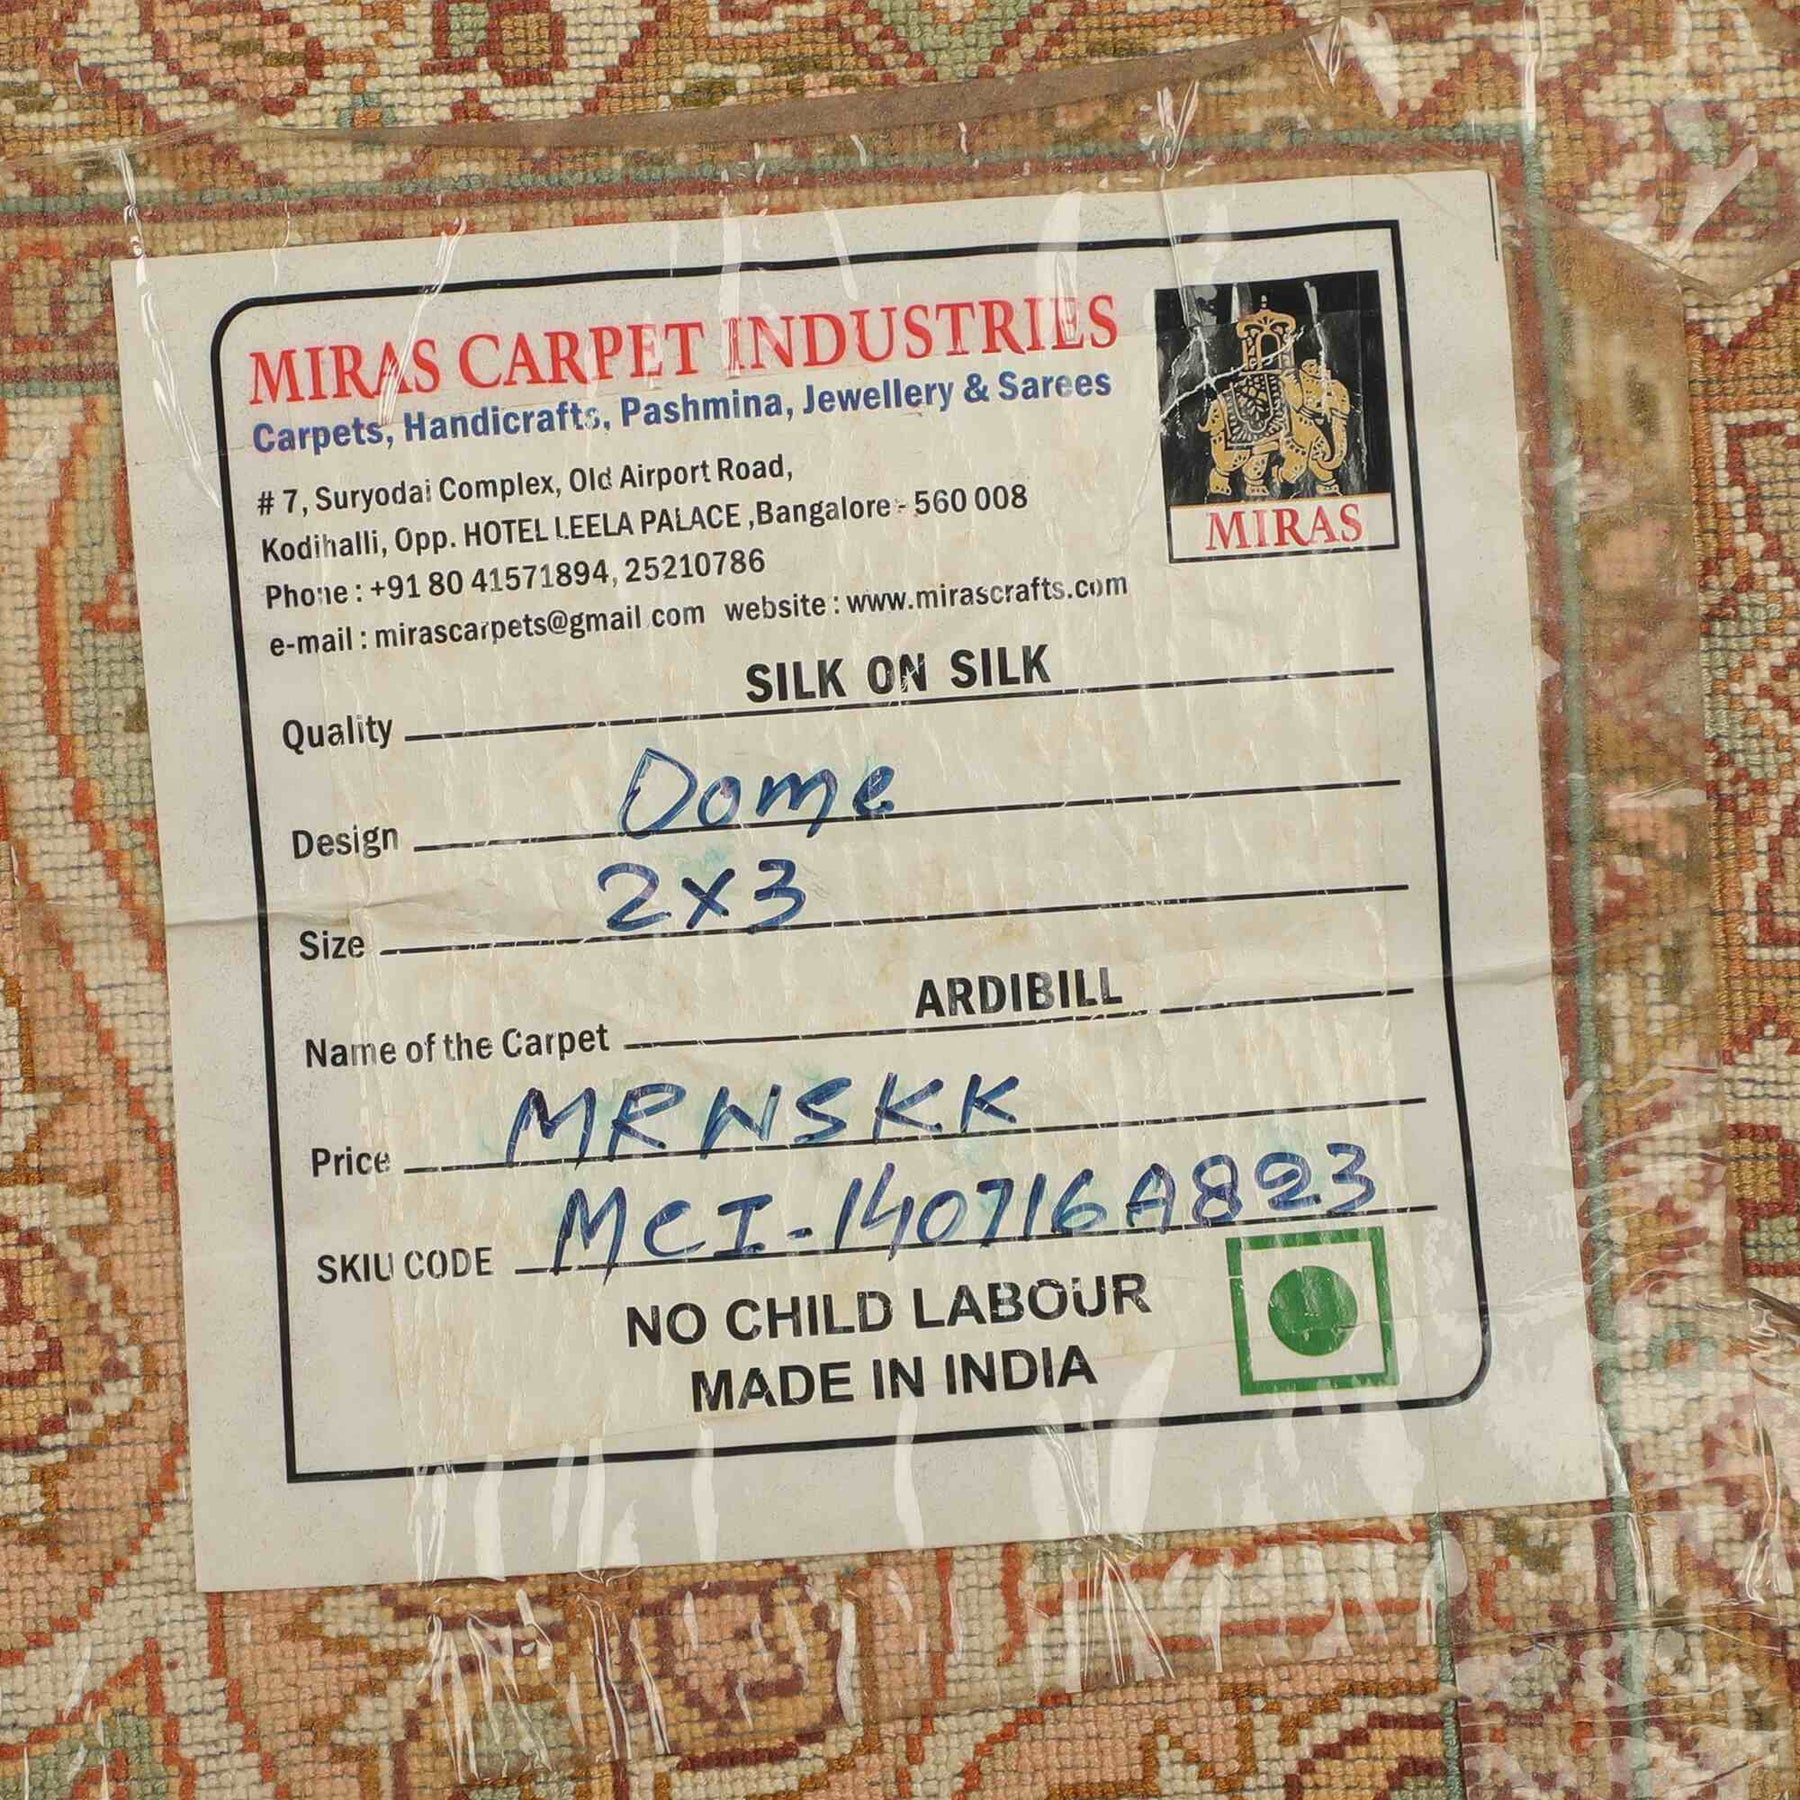 MIRAS CARPET INDUSTRIES
Carpets, Handicrafts, Pashmina, Jewellery & Sarees
# 7, Suryodai Complex, Old Airport Road,
Kodihalli, Opp. HOTEL LEELA PALACE ,Bangalore - 560 008
Phone : +91 80 41571894, 25210786
e-mail : mirascarpets@gmail.com website : www.mirascrafts.com
MIRAS
Quality SILK ON SILK
Design Dome
Size 2x3
Name of the Carpet ARDIBILL
Price MRNSKK
SKIU CODE MCI-140716A823
NO CHILD LABOUR
MADE IN INDIA